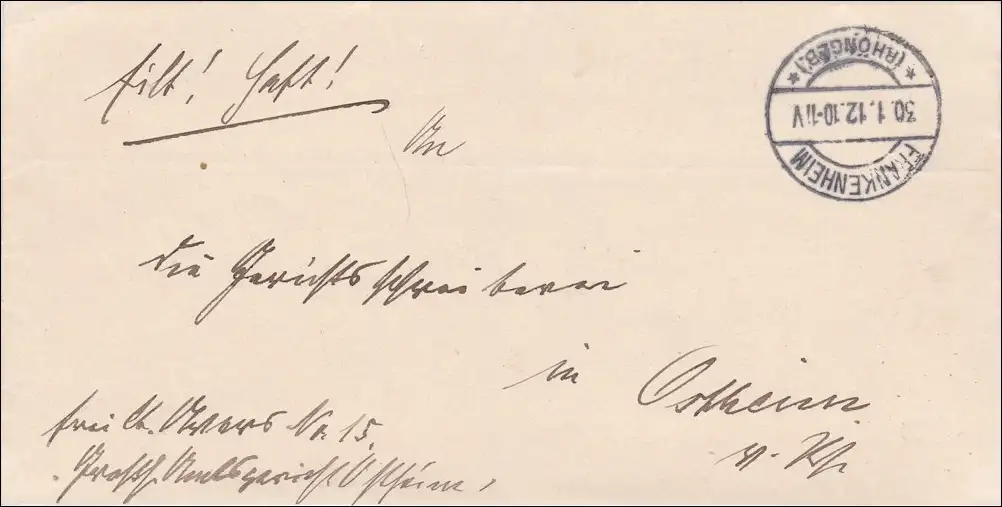 Eilt! Haft!
(RHÖNGEB.)
30.1.12.10-11V
FRANKENHEIM
An
die Gerichtsschreiberei
in Ostheim
v. Rh.
frei lt. Avers No. 15.
Großh. Amtsgericht Ostheim,